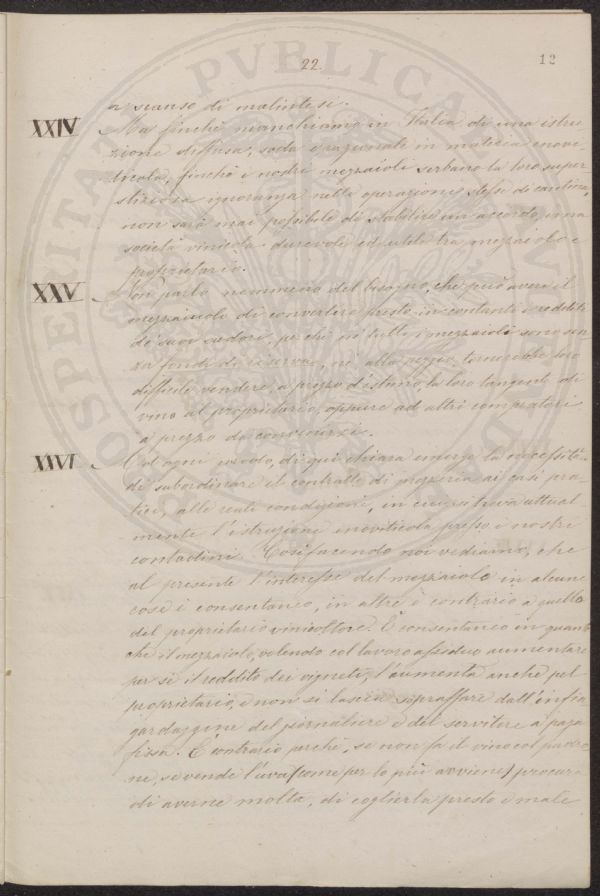 22.
12
a scanso di malintesi.
XXIV Ma finchè manchiamo in Italia di una istru-
zione diffusa, soda e razionale in materia enovi-
ticola, finchè i nostri mezzaioli serbano la loro super-
stiziosa ignoranza nelle operazioni stesse di cantina,
non sarà mai possibile di stabilire un accordo, una
società vinicola durevole ed utile tra mezzaiolo e
proprietario.
XXV Non parlo nemmeno del bisogno, che può avere il
mezzaiuolo di convertire presto in contanti i redditi
di suoi sudori, perchè in tutti i mezzaioli sono sen-
za fondi di riserva, nè alla peggio, tornerebbe loro
difficile vendere a prezzo d'estimo, la loro tangente di
vino al proprietario, oppure ad altri compratori
a prezzo da convenirsi.
XXVI Ad ogni modo, di qui chiara emerge la necessità
di subordinare il contratto di mezzeria ai casi pra-
tici, alle reali condizioni, in cui si trova attual-
mente l'istruzione enoviticola presso i nostri
contadini. Così facendo noi vediamo, che
al presente l'interesse del mezzaiolo in alcune
cose è consentaneo, in altre è contrario a quello
del proprietario vinicoltore. È consentaneo in quanto
che il mezzaiolo, volendo col lavoro assiduo aumentare
per sè il reddito dei vigneti, l'aumenta anche pel
proprietario, e non si lascia sopraffare dall'infin-
gardaggine del giornaliere e del servitore a paga
fissa. È contrario perchè, se non fa il vino col padro-
ne, se vende l'uva (come per lo più avviene) procura
di averne molta, di coglierla presto e male
PVBLICA